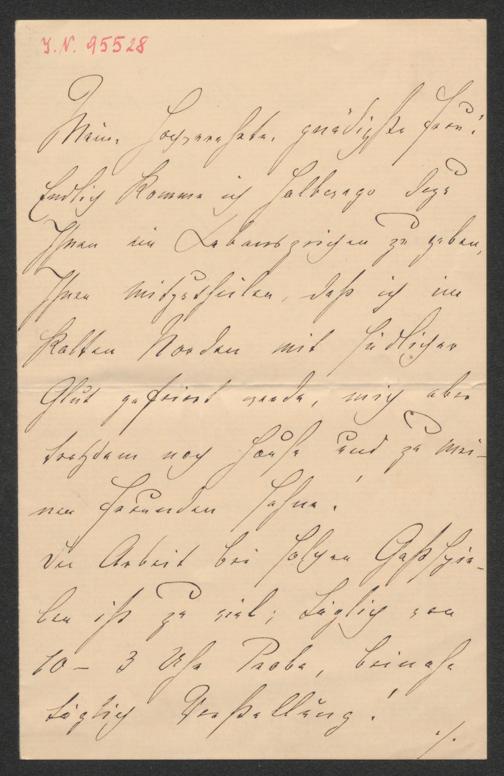 I.N. 95528
Meine hochverehrte, gnädigste Frau!
Endlich komme ich halbwegs dazu
Ihnen ein Lebenszeichen zu geben,
Ihnen mitzutheilen, daß ich im
kalten Norden mit südlicher
Glut gefeiert werde, mich aber
trotzdem nach Hause und zu mei-
nen Freunden sehne!
Die Arbeit bei solchen Gastspie-
len ist zu viel; täglich von
10 – 3 Uhr Probe, beinahe
täglich Vorstellung!
./.